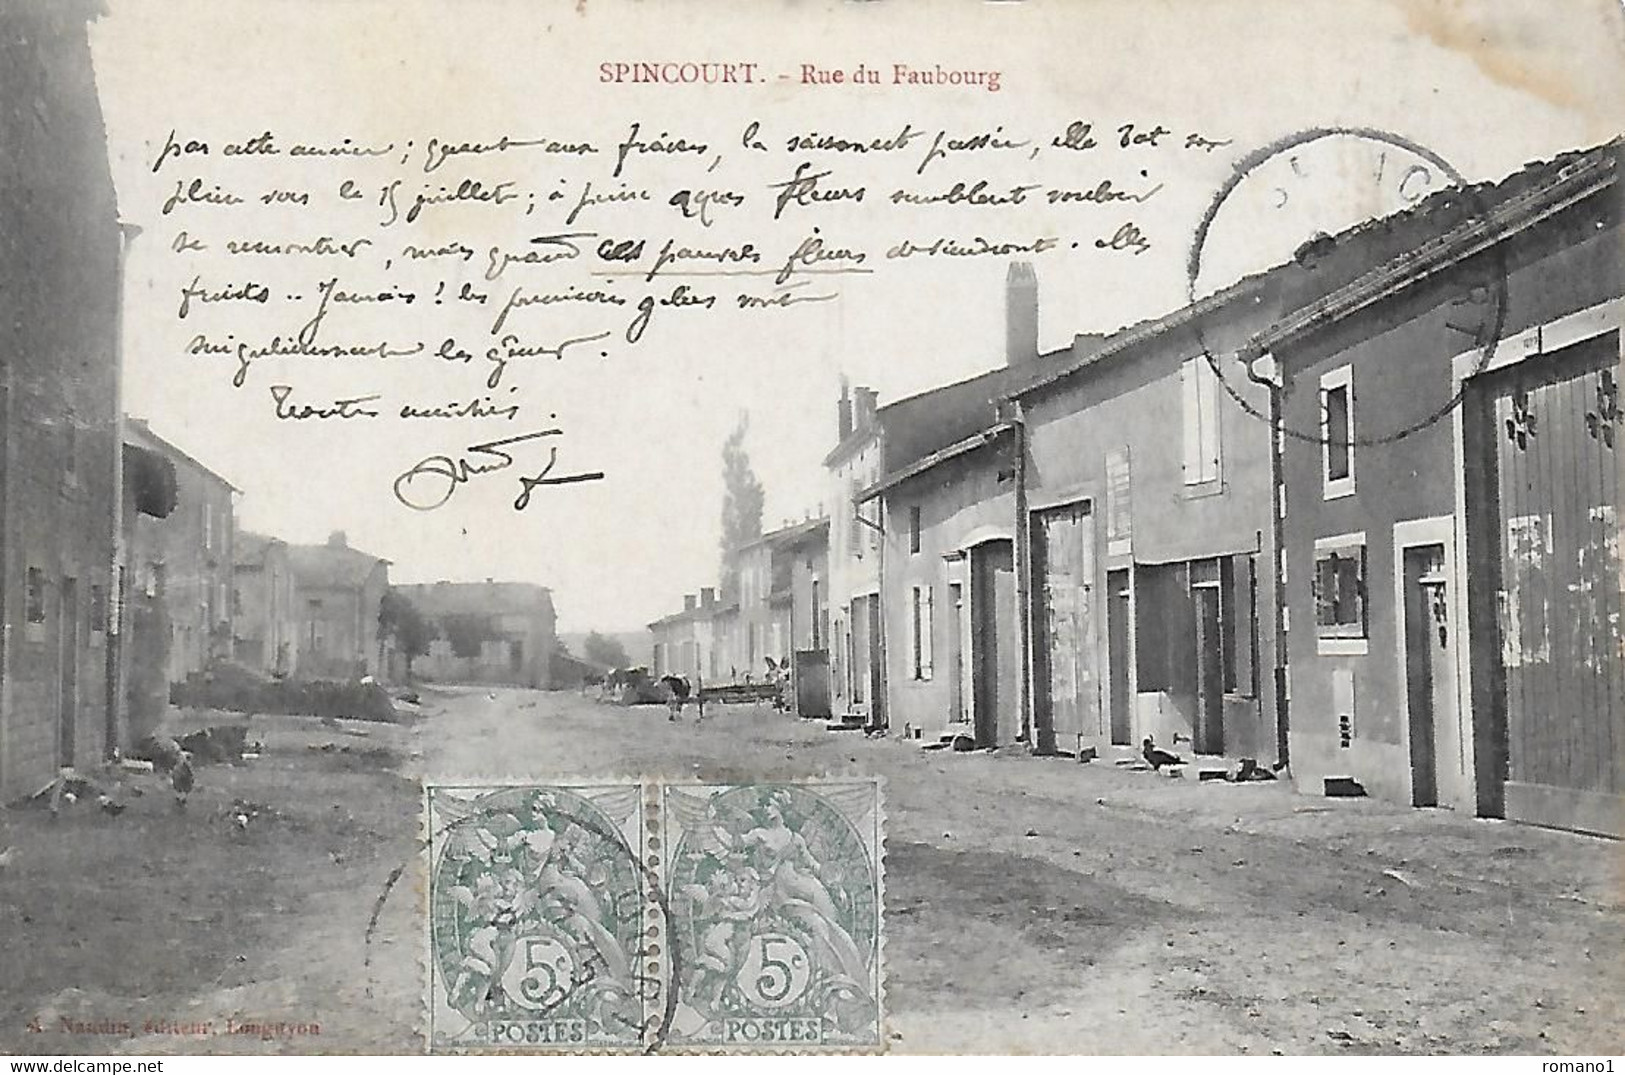 SPINCOURT. - Rue du Faubourg
par cette année ; quant aux fraises, la saison est passée, elle bat son
plein vers le 15 juillet ; à peine qques fleurs semblent vouloir
se remontrer, mais quand ces pauvres fleurs deviendront . elles
fruits .. Jamais ! les premières gelées vont
singulièrement les gêner .
Toutes amitiés .
5c
POSTES
5c
POSTES
A. Naudin, éditeur, Longuyon
romano1